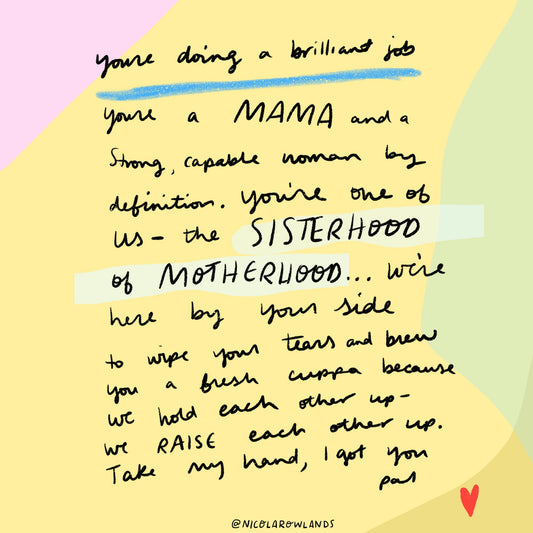 you're doing a brilliant job
you're a MAMA and a
Strong, capable woman by
definition. You're one of
us - the SISTERHOOD
of MOTHERHOOD... we're
here by your side
to wipe your tears and brew
you a fresh cuppa because
we hold each other up -
we RAISE each other up.
Take my hand, I got you
pal
@NICOLAROWLANDS